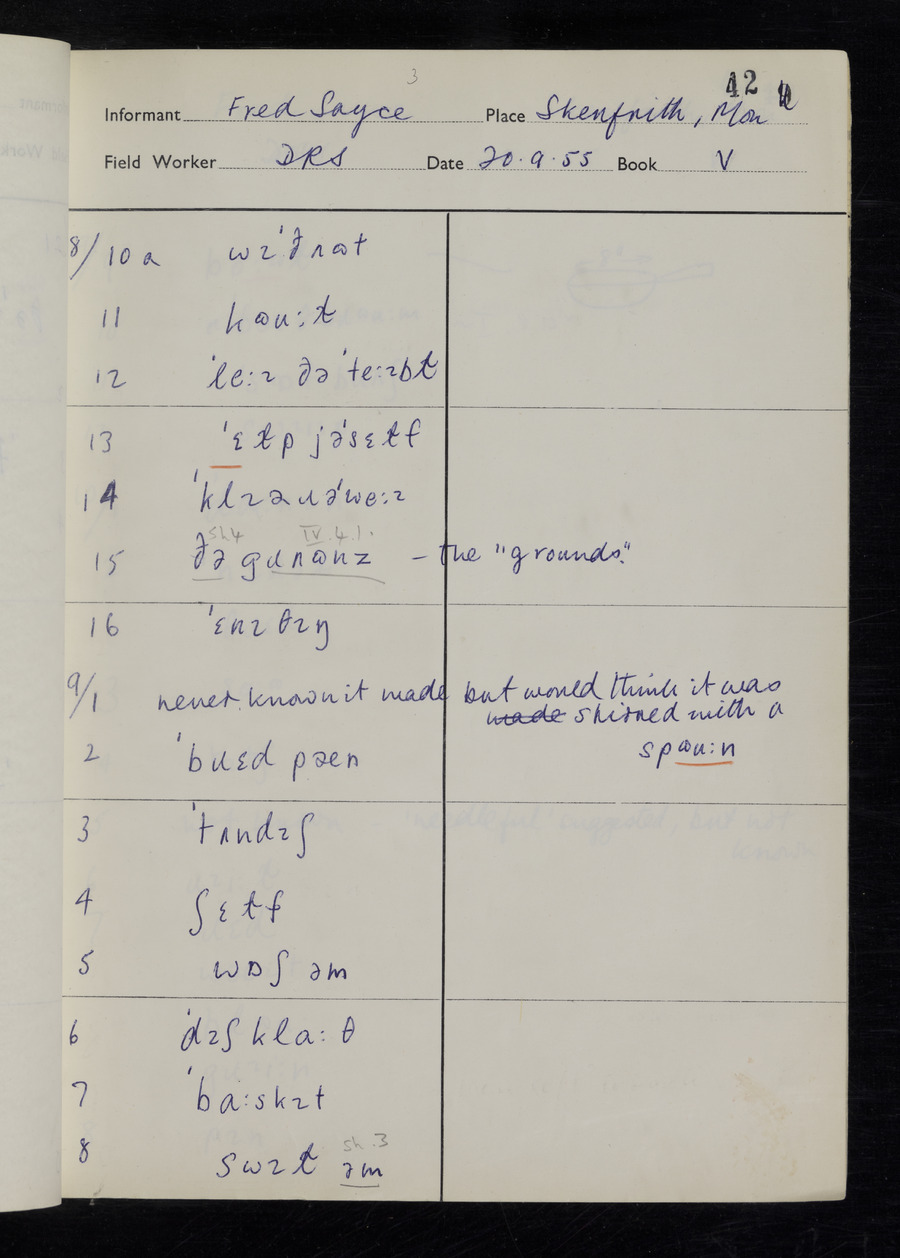 3
42
Informant Fred Sayce Place Skenfrith, Mon
Field Worker DRS Date 20.9.55 Book V
8/10 a wɪˈðʌʊt
11 kɒu:ɫ
12 ˈle:ɪ ðəˈte:ɪbɫ
13 ˈɛɫp jəˈsɛɫf
14 ˈklɪəɹəˈwe:ɪ
sh4 IV.4.1.
15 ðə gɹʌʊnz – the "grounds".
16 ˈɛnɪθɪŋ
9/1 never known it made but would think it was
made stirred with a
spɒu:n
2 ˈbɹɛd pæn
3 ˈtʌndɪʃ
4 ʃɛɫf
5 wɒʃ əm
6 ˈdɪʃkla:θ
7 ˈba:skɪt
sh.3
8 swɪɫ əm